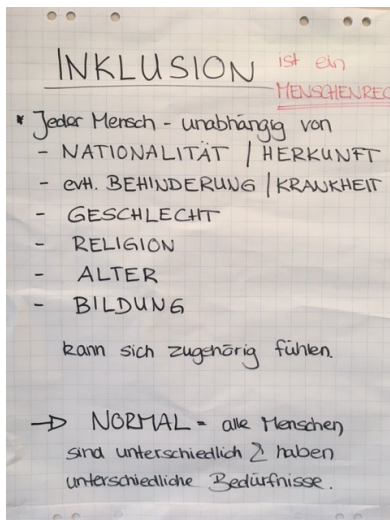 INKLUSION ist ein
MENSCHENREC
* Jeder Mensch - unabhängig von
- NATIONALITÄT | HERKUNFT
- evtl. BEHINDERUNG | KRANKHEIT
- GESCHLECHT
- RELIGION
- ALTER
- BILDUNG
kann sich zugehörig fühlen.
→ NORMAL = alle Menschen
sind unterschiedlich & haben
unterschiedliche Bedürfnisse.